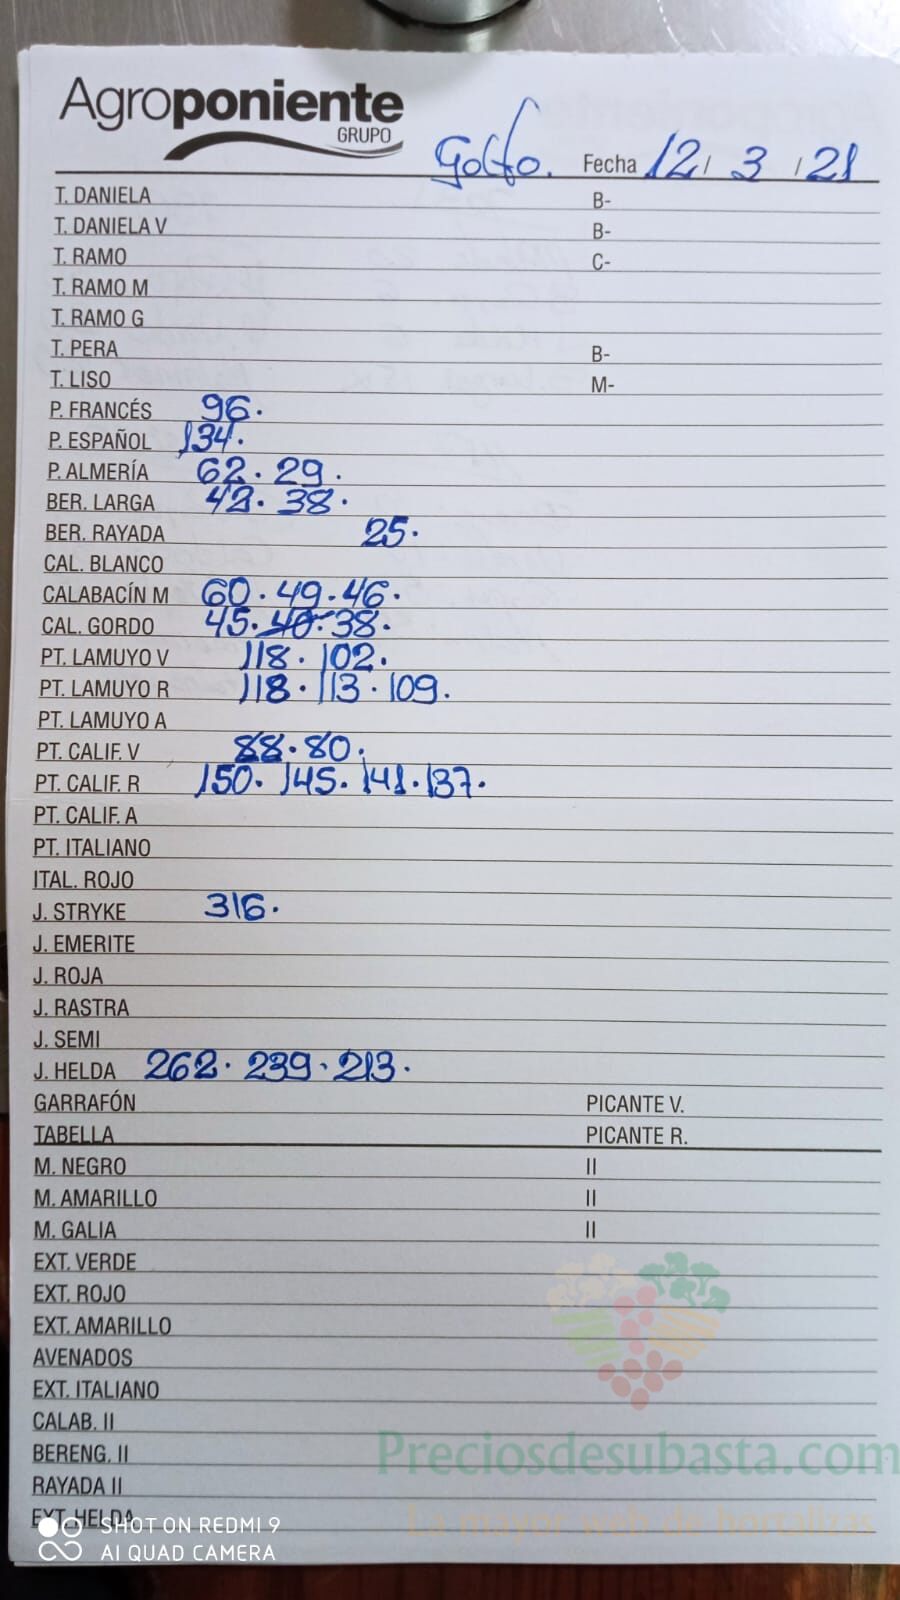 Agroponiente
GRUPO
Golfo. Fecha 12/ 3 /21
T. DANIELA B-
T. DANIELA V B-
T. RAMO C-
T. RAMO M
T. RAMO G
T. PERA B-
T. LISO M-
P. FRANCÉS 96.
P. ESPAÑOL 134.
P. ALMERÍA 62. 29.
BER. LARGA 42. 38.
BER. RAYADA 25.
CAL. BLANCO
CALABACÍN M 60. 49. 46.
CAL. GORDO 45. 40. 38.
PT. LAMUYO V 118. 102.
PT. LAMUYO R 118. 113. 109.
PT. LAMUYO A
PT. CALIF. V 88. 80.
PT. CALIF. R 150. 145. 141. 137.
PT. CALIF. A
PT. ITALIANO
ITAL. ROJO
J. STRYKE 316.
J. EMERITE
J. ROJA
J. RASTRA
J. SEMI
J. HELDA 262. 239. 213.
GARRAFÓN PICANTE V.
TABELLA PICANTE R.
M. NEGRO II
M. AMARILLO II
M. GALIA II
EXT. VERDE
EXT. ROJO
EXT. AMARILLO
AVENADOS
EXT. ITALIANO
CALAB. II
BERENG. II
RAYADA II
EXT. HELDA
Preciosdesubasta.com
La mayor web de hortalizas
SHOT ON REDMI 9
AI QUAD CAMERA